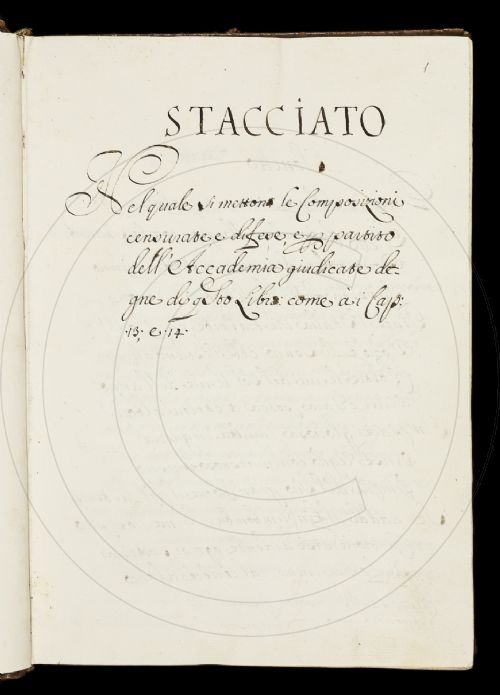 1
STACCIATO
Nel quale si mettono le Composizioni
censurate e difese, e p partito
dell'Accademia giudicate de-
gne di qsto Libro: come à i Cap:
13: e 14.